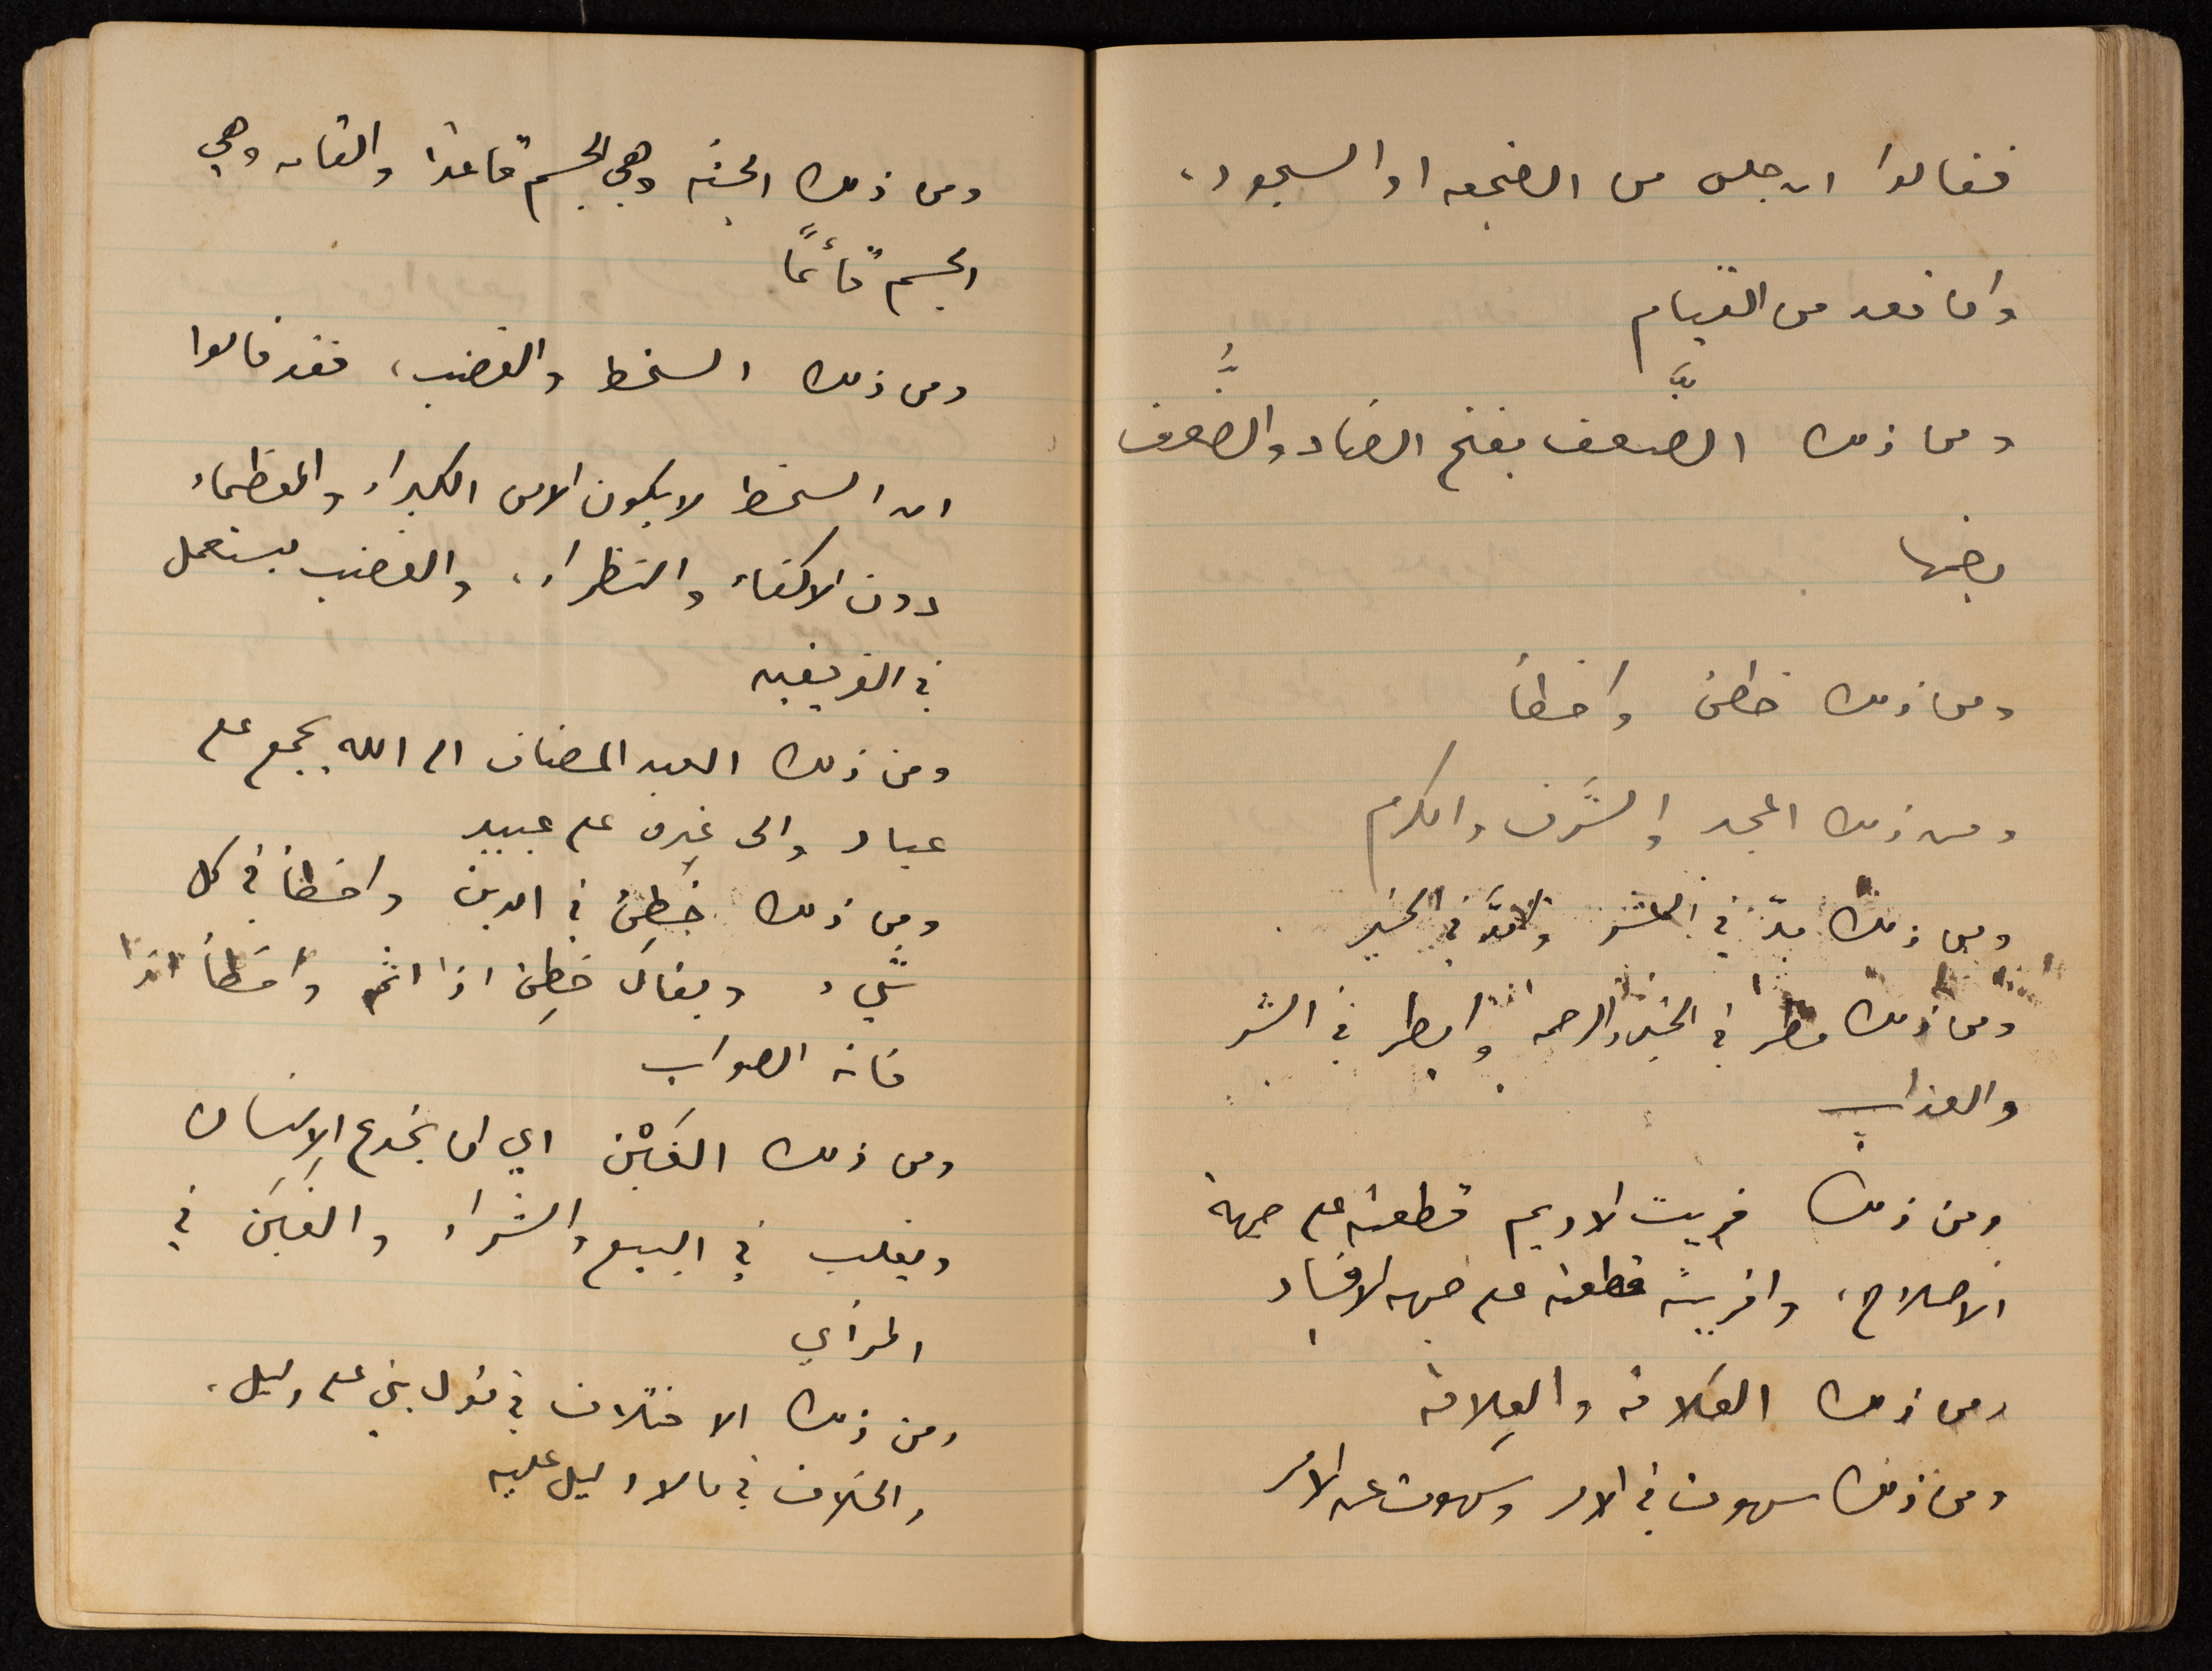 فقالوا ان جلس من الضجعه او السجود،
وان قعد من القيام
ومن ذلك الضَّعف بفتح الضاد والضُّعف
بضمها
ومن ذلك خطئ واخطأ
ومن ذلك المجد والشرف والكرم
ومن ذلك مدّ في الشر وامدَّ في الخير
ومن ذلك مطر في الخير والرحمه وامطر في الشر
والعذاب
ومن ذلك فريت الاديم قطعته على جهة
الاصلاح، وافريته قطعته على جهه الافساد
ومن ذلك العَلاقه والعِلاقه
ومن ذلك سهوت في الامر وسهوت عن الامر
ومن ذلك الجثه وهي الجسم قاعدا والقامه وهي
الجسم قائمًا
ومن ذلك السخط والغضب، فقد قالوا
ان السخط لا يكون الا من الكبراء والعظماء
دون الاكفاء والنظراء، والغضب يستعمل
في الفريقين
ومن ذلك العبد المضاف الى الله يجمع على
عباد والى غيره على عبيد
ومن ذلك خَطِئ في الدين واخطأ في كل
شيء ويقال خطِئ اذا اثم واخطَأ اذا
فاته الصواب
ومن ذلك الغَبْن اي ان يخدع الإنسان
ويغلب في البيع والشراء والغبَن في
الرأي
ومن ذلك الاختلاف في قول بني على دليل،
والخلاف في ما لا دليل عليه